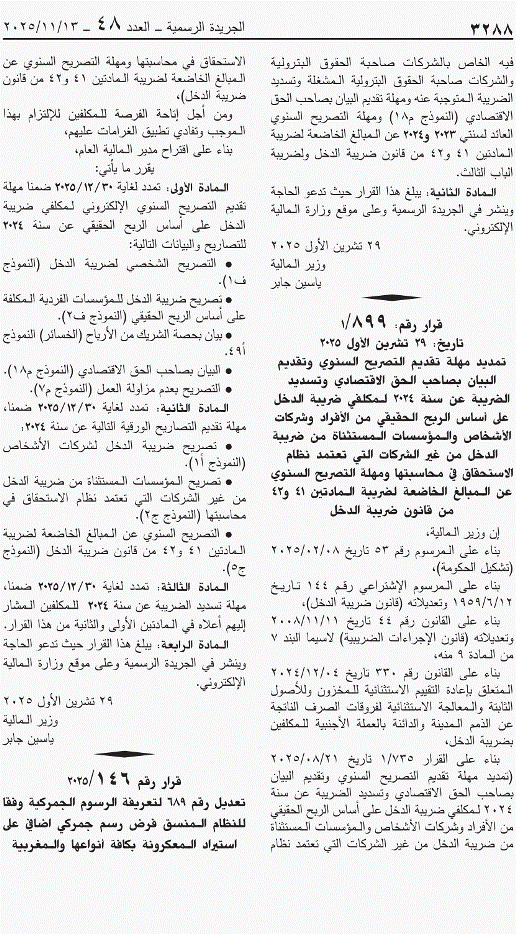 ٣٢٨٨
الجريدة الرسمية ــ العدد ٤٨ ــ ٢٠٢٥/١١/١٣
فيه الخاص بالشركات صاحبة الحقوق البترولية
والشركات صاحبة الحقوق البترولية المشغلة وتسديد
الضريبة المتوجبة عنه ومهلة تقديم البيان بصاحب الحق
الاقتصادي (النموذج م١٨) ومهلة التصريح السنوي
العائد لسنتي ٢٠٢٣ و٢٠٢٤ عن المبالغ الخاضعة لضريبة
المادتين ٤١ و٤٢ من قانون ضريبة الدخل ولضريبة
الباب الثالث.
المادة الثانية: يبلغ هذا القرار حيث تدعو الحاجة
وينشر في الجريدة الرسمية وعلى موقع وزارة المالية
الإلكتروني.
٢٩ تشرين الأول ٢٠٢٥
وزير المالية
ياسين جابر
قرار رقم: ١/٨٩٩
تاريخ: ٢٩ تشرين الأول ٢٠٢٥
تمديد مهلة تقديم التصريح السنوي وتقديم
البيان بصاحب الحق الاقتصادي وتسديد
الضريبة عن سنة ٢٠٢٤ لمكلفي ضريبة الدخل
على أساس الربح الحقيقي من الأفراد وشركات
الأشخاص والمؤسسات المستثناة من ضريبة
الدخل من غير الشركات التي تعتمد نظام
الاستحقاق في محاسبتها ومهلة التصريح السنوي
عن المبالغ الخاضعة لضريبة المادتين ٤١ و٤٢
من قانون ضريبة الدخل
إن وزير المالية،
بناء على المرسوم رقم ٥٣ تاريخ ٢٠٢٥/٠٢/٠٨
(تشكيل الحكومة)،
بناء على المرسوم الإشتراعي رقم ١٤٤ تاريخ
١٩٥٩/٦/١٢ وتعديلاته (قانون ضريبة الدخل)،
بناء على القانون رقم ٤٤ تاريخ ٢٠٠٨/١١/١١
وتعديلاته (قانون الإجراءات الضريبية) لاسيما البند ٧
من المادة ٩ منه،
بناء على القانون رقم ٣٣٠ تاريخ ٢٠٢٤/١٢/٠٤
المتعلق بإعادة التقييم الاستثنائية للمخزون وللأصول
الثابتة والمعالجة الاستثنائية لفروقات الصرف الناتجة
عن الذمم المدينة والدائنة بالعملة الأجنبية للمكلفين
بضريبة الدخل،
بناء على القرار ١/٧٣٥ تاريخ ٢٠٢٥/٠٨/٢١
(تمديد مهلة تقديم التصريح السنوي وتقديم البيان
بصاحب الحق الاقتصادي وتسديد الضريبة عن سنة
٢٠٢٤ لمكلفي ضريبة الدخل على أساس الربح الحقيقي
من الأفراد وشركات الأشخاص والمؤسسات المستثناة
من ضريبة الدخل من غير الشركات التي تعتمد نظام
الاستحقاق في محاسبتها ومهلة التصريح السنوي عن
المبالغ الخاضعة لضريبة المادتين ٤١ و٤٢ من قانون
ضريبة الدخل)،
ومن أجل إتاحة الفرصة للمكلفين للإلتزام بهذا
الموجب وتفادي تطبيق الغرامات عليهم،
بناء على اقتراح مدير المالية العام،
يقرر ما يأتي:
المادة الأولى: تمدد لغاية ٢٠٢٥/١٢/٣٠ ضمنا مهلة
تقديم التصريح السنوي الإلكتروني لمكلفي ضريبة
الدخل على أساس الربح الحقيقي عن سنة ٢٠٢٤
للتصاريح والبيانات التالية:
● التصريح الشخصي لضريبة الدخل (النموذج
ف١).
● تصريح ضريبة الدخل للمؤسسات الفردية المكلفة
على أساس الربح الحقيقي (النموذج ف٢).
● بيان بحصة الشريك من الأرباح (الخسائر) النموذج
أ٤٩.
● البيان بصاحب الحق الاقتصادي (النموذج م١٨).
● التصريح بعدم مزاولة العمل (النموذج م٧).
المادة الثانية: تمدد لغاية ٢٠٢٥/١٢/٣٠ ضمنا،
مهلة تقديم التصاريح الورقية التالية عن سنة ٢٠٢٤:
● تصريح ضريبة الدخل لشركات الأشخاص
(النموذج أ١).
● تصريح المؤسسات المستثناة من ضريبة الدخل
من غير الشركات التي تعتمد نظام الاستحقاق في
محاسبتها (النموذج ج٢).
● التصريح السنوي عن المبالغ الخاضعة لضريبة
المادتين ٤١ و٤٢ من قانون ضريبة الدخل (النموذج
ج٥).
المادة الثالثة: تمدد لغاية ٢٠٢٥/١٢/٣٠ ضمنا،
مهلة تسديد الضريبة عن سنة ٢٠٢٤ للمكلفين المشار
إليهم أعلاه في المادتين الأولى والثانية من هذا القرار.
المادة الرابعة: يبلغ هذا القرار حيث تدعو الحاجة
وينشر في الجريدة الرسمية وعلى موقع وزارة المالية
الإلكتروني.
٢٩ تشرين الأول ٢٠٢٥
وزير المالية
ياسين جابر
قرار رقم ٢٠٢٥/١٤٦
تعديل رقم ٦٨٩ لتعريفة الرسوم الجمركية وفقا
للنظام المنسق فرض رسم جمركي اضافي على
استيراد المعكرونة بكافة أنواعها والمغربية